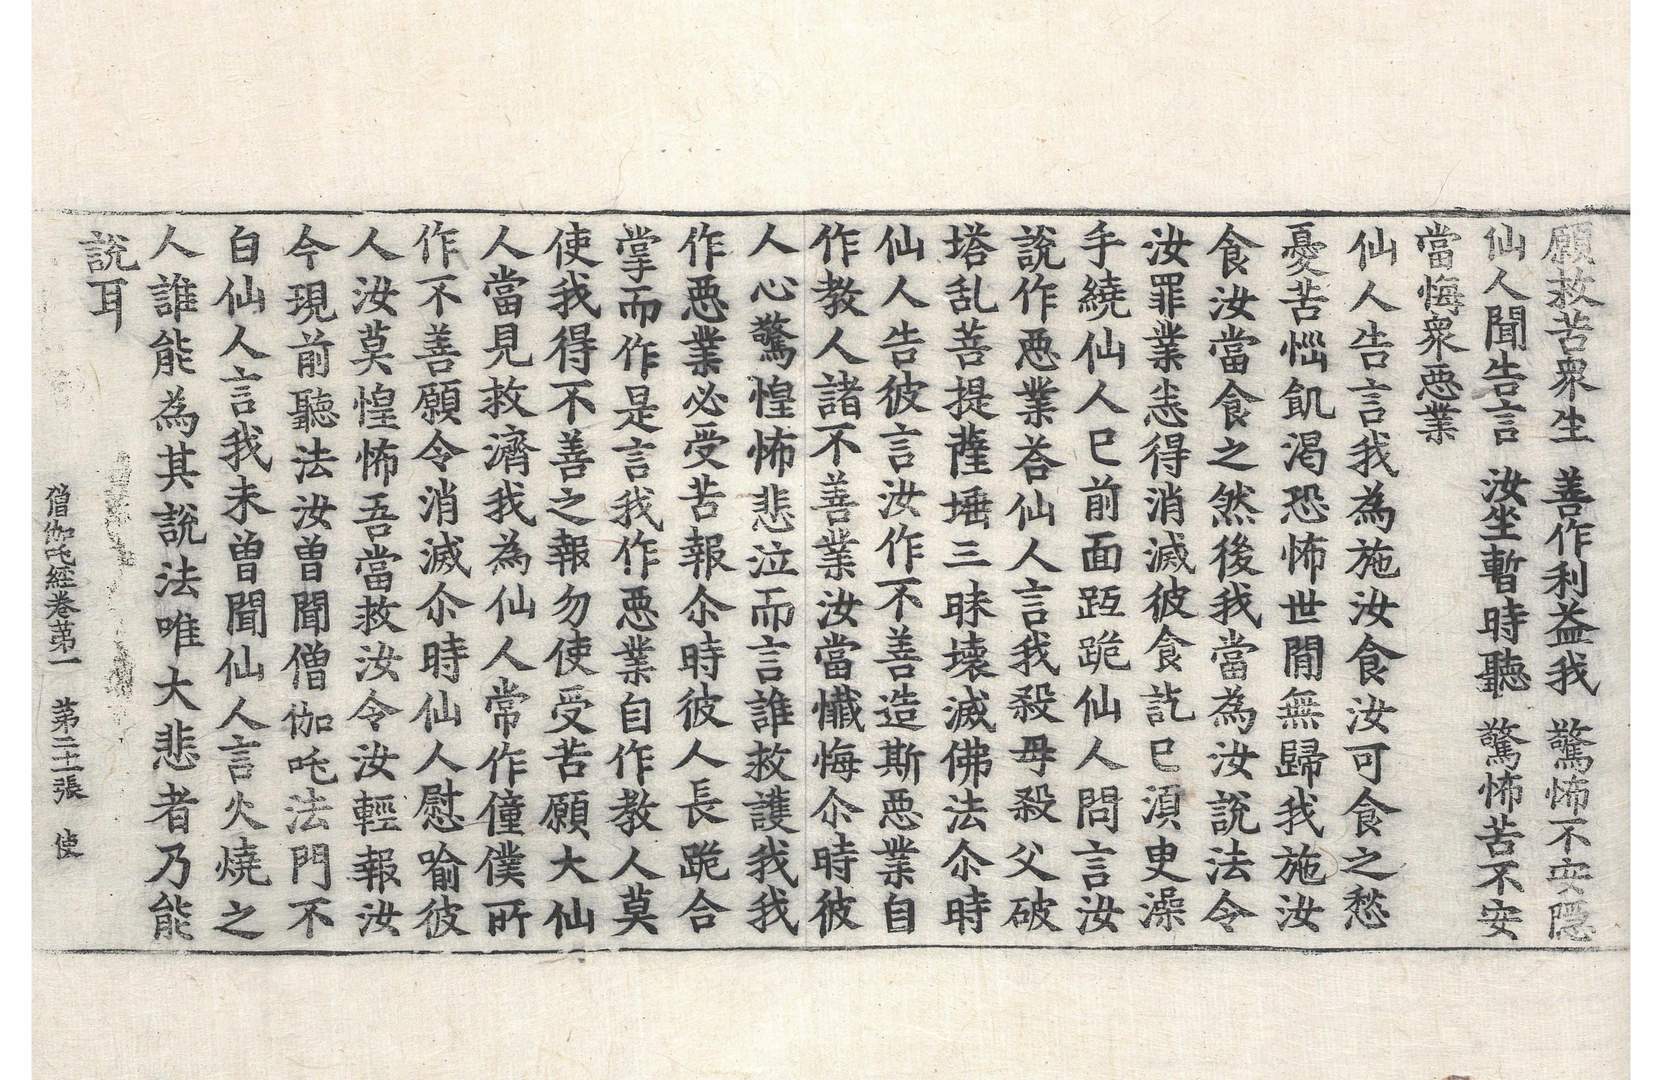 願救苦衆生　善作利益我　驚怖不安隱
仙人聞告言　汝坐暫時聽　驚怖苦不安
當悔衆惡業
仙人告言我為施汝食汝可食之愁
憂苦惱飢渴恐怖世間無歸我施汝
食汝當食之然後我當為汝說法令
汝罪業恙得消滅彼食訖已湏臾澡
手繞仙人已前面䟦跪仙人問言汝
說作惡業荅仙人言我殺母殺父破
塔乱菩提薩埵三昧壞滅佛法尒時
仙人告彼言汝作不善造斯惡業自
作教人諸不善業汝當懺悔尒時彼
人心驚惶怖悲泣而言誰救護我我
作惡業必受苦報尒時彼人長跪合
掌而作是言我作惡業自作教人莫
使我得不善之報勿使受苦願大仙
人當見救濟我為仙人常作僮僕所
作不善願令消滅尒時仙人慰喻彼
人汝莫惶怖吾當救汝令汝輕報汝
今現前聽法汝曾聞僧伽吒法門不
白仙人言我未曾聞仙人言火燒之
人誰能為其說法唯大悲者乃能
說耳
僧伽吒經卷苐一　苐二十一張　使